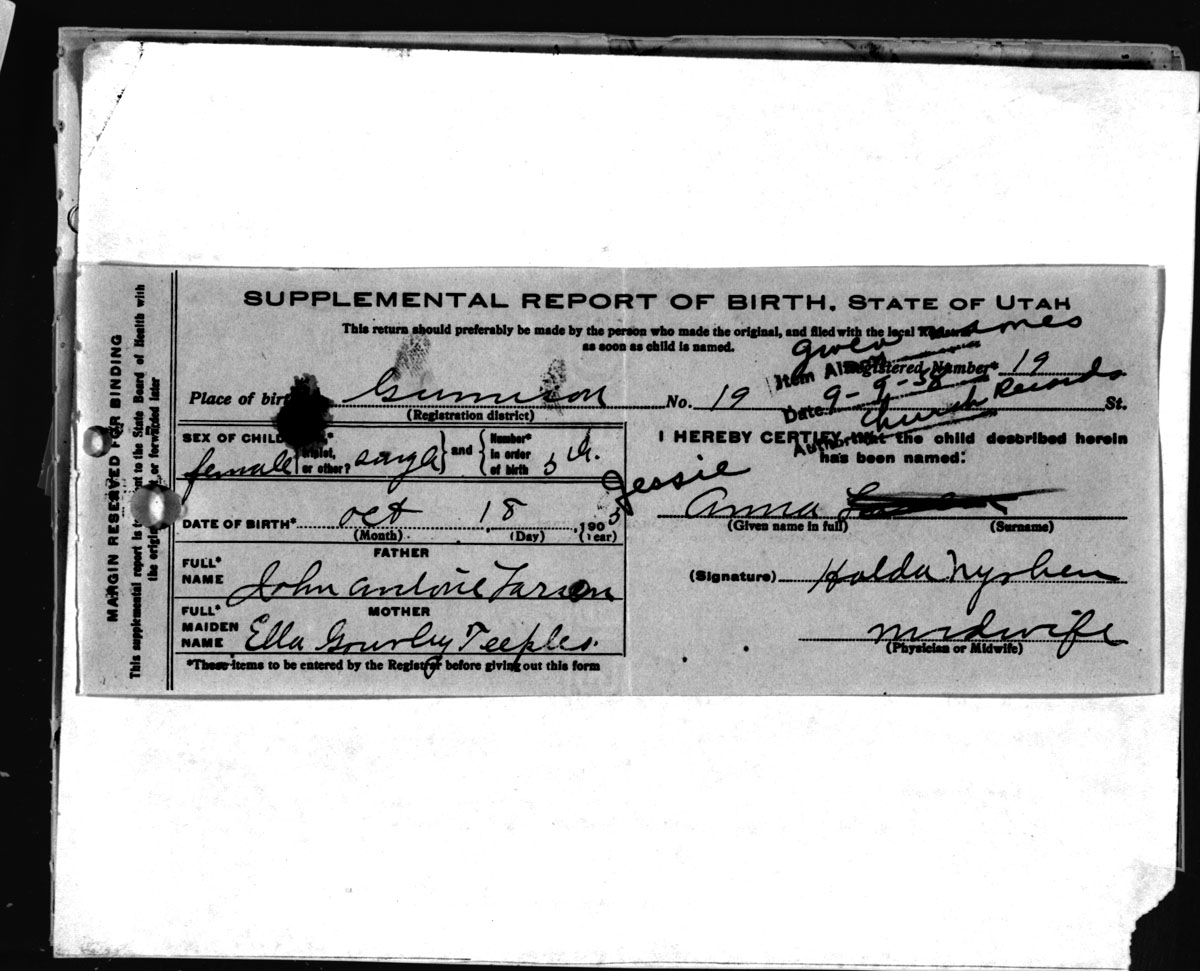 SUPPLEMENTAL REPORT OF BIRTH. STATE OF UTAH
This return should preferably be made by the person who made the original, and filed with the local
as soon as child is named.
Given names
Item Al
Registered Number* 19
Place of birth Gunnison No. 19 St.
(Registration district)
Date 9-9-58
Church Records
SEX OF CHILD* triplet, or other? and { Number* in order of birth 5th.
female
I HEREBY CERTIFY that the child described herein
has been named:
Jessie
Anna
(Given name in full) (Surname)
DATE OF BIRTH* Oct 18, 1905
(Month) (Day) (Year)
FATHER
FULL* NAME John Larson
(Signature) Hulda
MOTHER
FULL* MAIDEN NAME Ella Gourley Teeples.
midwife
(Physician or Midwife)
*These items to be entered by the Registrar before giving out this form
MARGIN RESERVED FOR BINDING
This supplemental report is to the State Board of Health with
the original or forwarded later